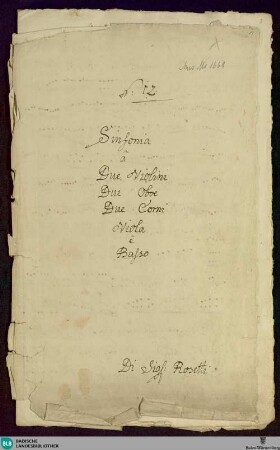 Mus. Ms. 1668
N: 12
Sinfonia
à
Due Violini
Due Oboe
Due Corni
Viola
è
Basso
Di Sigl: Rosetti
BLB BADISCHE
LANDESBIBLIOTHEK
Baden-Württemberg